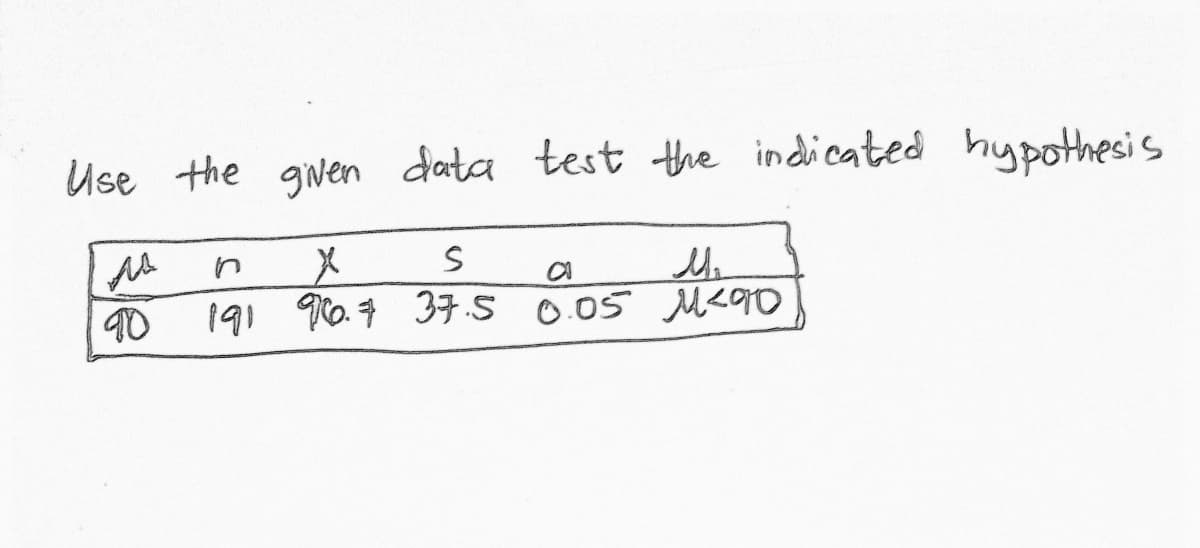 Use the given data test the indicated hypothesis
μ n x s a μ₁
90 191 96.7 37.5 0.05 μ<90